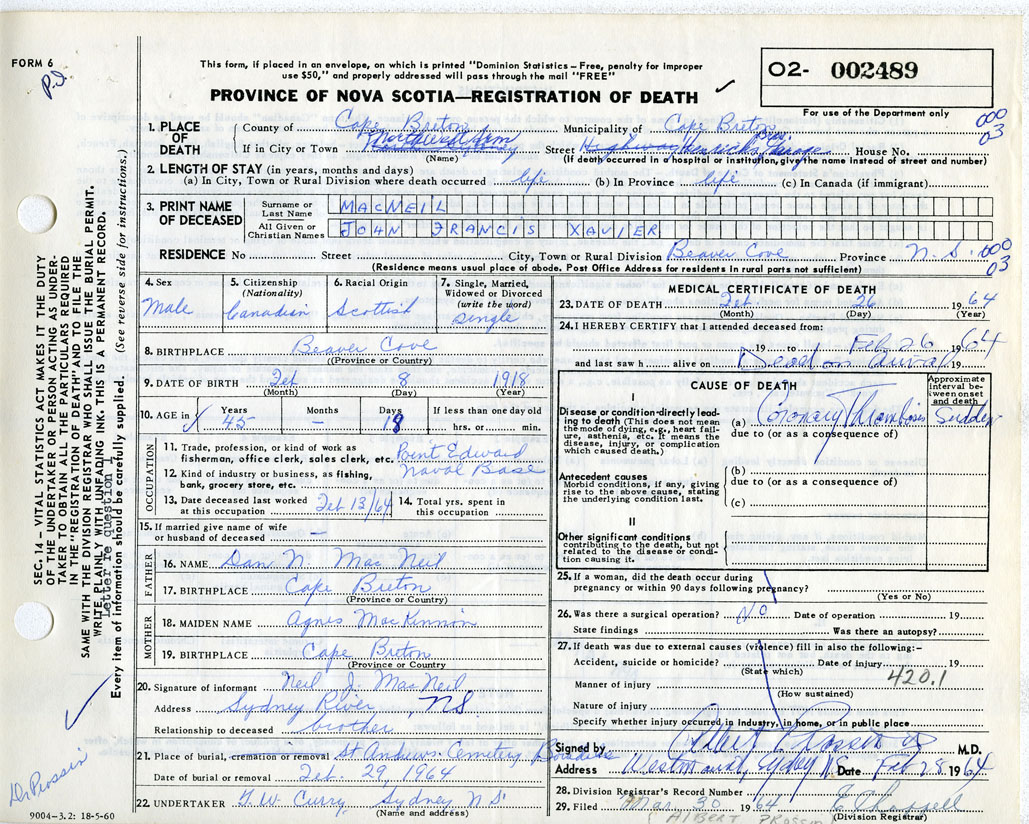 FORM 6
P.I
This form, if placed in an envelope, on which is printed "Dominion Statistics – Free, penalty for improper
use $50," and properly addressed will pass through the mail "FREE"
PROVINCE OF NOVA SCOTIA—REGISTRATION OF DEATH
O2- 002489
For use of the Department only
000
03
1. PLACE OF DEATH
County of Cape Breton Municipality of Cape Breton
If in City or Town Northwest Arm Street Highway Garage House No.
(Name) (If death occurred in a hospital or institution, give the name instead of street and number)
2. LENGTH OF STAY (in years, months and days)
(a) In City, Town or Rural Division where death occurred life (b) In Province life (c) In Canada (if immigrant)
3. PRINT NAME OF DECEASED
Surname or Last Name MACNEIL
All Given or Christian Names JOHN FRANCIS XAVIER
RESIDENCE No Street City, Town or Rural Division Beaver Cove Province N.S. 000
03
(Residence means usual place of abode. Post Office Address for residents in rural parts not sufficient)
4. Sex
Male
5. Citizenship
(Nationality)
Canadian
6. Racial Origin
Scottish
7. Single, Married,
Widowed or Divorced
(write the word)
Single
8. BIRTHPLACE Beaver Cove
(Province or Country)
9. DATE OF BIRTH Feb 8 1918
(Month) (Day) (Year)
10. AGE in
Years Months Days If less than one day old
45 – 18 hrs. or min.
OCCUPATION
11. Trade, profession, or kind of work as
fisherman, office clerk, sales clerk, etc. Point Edward
12. Kind of industry or business, as fishing,
bank, grocery store, etc. Naval Base
13. Date deceased last worked
at this occupation Feb 13/64
14. Total yrs. spent in
this occupation
15. If married give name of wife
or husband of deceased –
FATHER
16. NAME Dan N. MacNeil
17. BIRTHPLACE Cape Breton
(Province or Country)
MOTHER
18. MAIDEN NAME Agnes MacKinnon
19. BIRTHPLACE Cape Breton
(Province or Country
20. Signature of informant Neil J. MacNeil
Address Sydney River NS
Relationship to deceased brother
21. Place of burial, cremation or removal St Andrew Cemetery Boisdale
Date of burial or removal Feb. 29, 1964
22. UNDERTAKER T.W. Curry Sydney N.S.
(Name and address)
9004-3.2: 18-5-60
MEDICAL CERTIFICATE OF DEATH
23. DATE OF DEATH Feb 26 1964
(Month) (Day) (Year)
24. I HEREBY CERTIFY that I attended deceased from:
19 to Feb 26 1964
and last saw h alive on Dead on arrival 19
CAUSE OF DEATH
Approximate
interval be-
tween onset
and death
I
Disease or condition directly lead-
ing to death (This does not mean
the mode of dying, e.g., heart fail-
ure, asthenia, etc. It means the
disease, injury, or complication
which caused death.)
(a) Coronary Thrombosis Sudden
due to (or as a consequence of)
Antecedent causes
Morbid conditions, if any, giving
rise to the above cause, stating
the underlying condition last.
(b)
due to (or as a consequence of)
(c)
II
Other significant conditions
contributing to the death, but not
related to the disease or condi-
tion causing it.
25. If a woman, did the death occur during
pregnancy or within 90 days following pregnancy?
(Yes or No)
26. Was there a surgical operation? No Date of operation 19
State findings Was there an autopsy?
27. If death was due to external causes (violence) fill in also the following:-
Accident, suicide or homicide? Date of injury 19
(State which)
420.1
Manner of injury
(How sustained)
Nature of injury
Specify whether injury occurred in industry, in home, or in public place
Signed by Albert Prossin M.D.
Address Westmount, Sydney N.S. Date Feb 28 1964
28. Division Registrar's Record Number
29. Filed Mar. 30 1964 E Chappell
(Division Registrar)
ALBERT PROSSIN
SEC. 14 – VITAL STATISTICS ACT MAKES IT THE DUTY
OF THE UNDERTAKER OR PERSON ACTING AS UNDER-
TAKER TO OBTAIN ALL THE PARTICULARS REQUIRED
IN THE "REGISTRATION OF DEATH" AND TO FILE THE
SAME WITH THE DIVISION REGISTRAR WHO SHALL ISSUE THE BURIAL PERMIT.
WRITE PLAINLY WITH UNFADING INK. THIS IS A PERMANENT RECORD.
Letter re question
Every item of information should be carefully supplied. (See reverse side for instructions.)
Dr Prossin